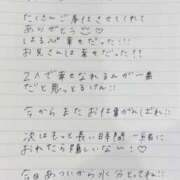 たくさんご奉仕させてくれて
ありがとう♡
はるぴ幸せだった!!!
お兄さんは幸せだった??
2人で幸せなれるんが一番
だと思っとるけん!!
今からまたお仕事がんばれ!!
次はもっと長い時間一緒に
おれたら嬉しいな!♡
今日あついから水分とってね!!